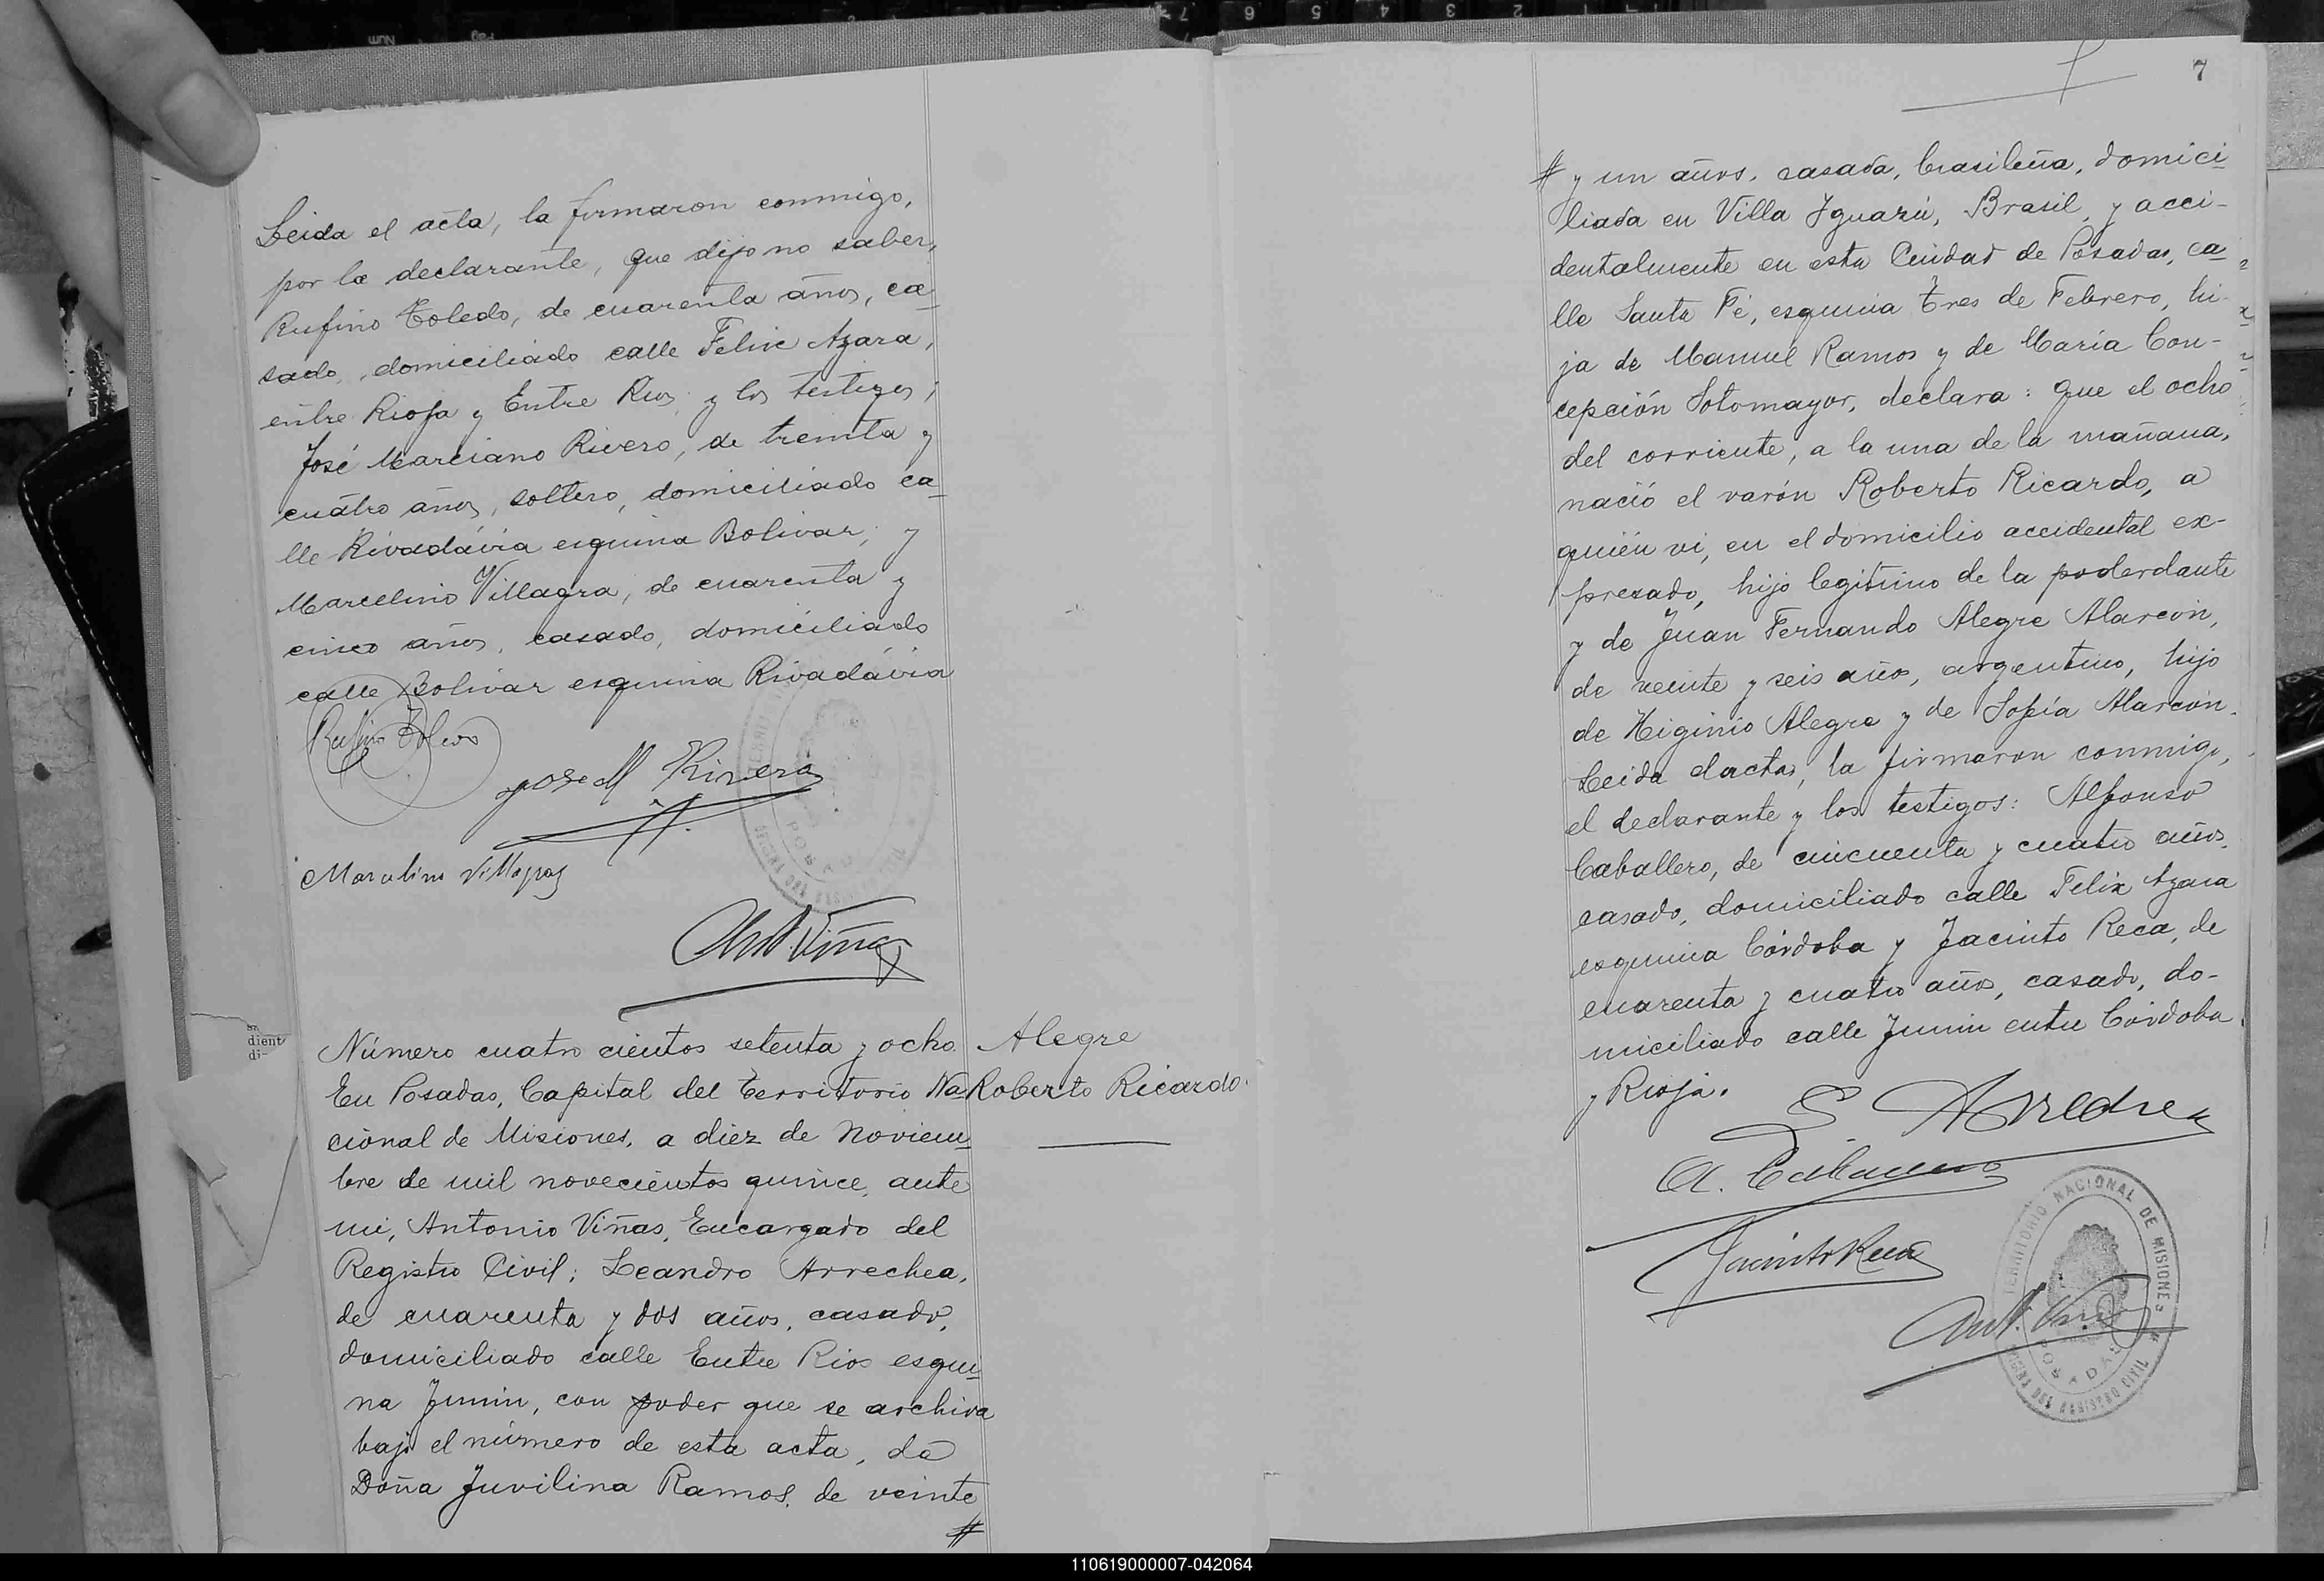 Leida el acta, la firmaron conmigo,
por la declarante, que dijo no saber,
Rufino Toledo, de cuarenta años, ca
sado, domiciliado calle Felix Azara,
entre Rioja y Entre Rios; y los testigos,
José Marciano Rivero, de treinta y
cuatro años, soltero, domiciliado ca
lle Rivadávia esquina Bolivar; y
Marcelino Villagra, de cuarenta y
cinco años, casado, domiciliado
calle Bolivar esquina Rivadávia
Rufino Toledo
Jose M Rivero
Marcelino Villagra
Ant. Viñas
Número cuatro cientos setenta y ocho
En Posadas, Capital del Territorio Na
cional de Misiones, a diez de Noviem
bre de mil novecientos quince, ante
mi, Antonio Viñas, Encargado del
Registro Civil; Leandro Arrechea,
de cuarenta y dos años, casado,
domiciliado calle Entre Rios esqui
na Junin, con poder que se archiva
bajo el número de esta acta, de
Doña Juvilina Ramos, de veinte
#
Alegre
Roberto Ricardo.
dient
di-
7
# y un años, casada, brasileña, domici
liada en Villa Iguazú, Brasil, y acci-
dentalmente en esta Ciudad de Posadas, ca
lle Santa Fé, esquina Tres de Febrero, hi-
ja de Manuel Ramos y de María Con-
cepción Sotomayor, declara: que el ocho
del corriente, a la una de la mañana,
nació el varón Roberto Ricardo, a
quién vi, en el domicilio accidental ex-
presado, hijo legitimo de la poderdante
y de Juan Fernando Alegre Alarcón,
de veinte y seis años, argentino, hijo
de Higinio Alegre y de Sofía Alarcón.
Leida el acta, la firmaron conmigo,
el declarante y los testigos: Alfonso
Caballero, de cincuenta y cuatro años,
casado, domiciliado calle Felix Azara
esquina Córdoba y Jacinto Reca, de
cuarenta y cuatro años, casado, do-
miciliado calle Junin entre Córdoba
y Rioja.
L Arrechea
A. Caballero
Jacinto Reca
Ant. Viñas
TERRITORIO NACIONAL DE MISIONES
OFICINA DEL REGISTRO CIVIL
POSADAS
110619000007-042064